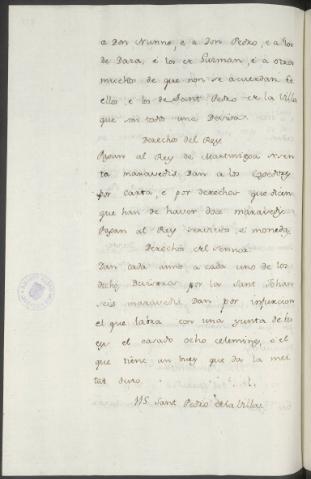 a Don Nunno, e a Don Pedro, e a los
de Daza, e los de Guzman, e a otros
muchos de que non se acuerdan
ellos, e los de Sant Pedro de la Villa
que son todo una Devisa.
Derechos del Rey
Pagan al Rey de Martiniega
ta maravedis. Dan a los
por carta, e por derechos que dicen
que han de haver doce maravedis
Pagan al Rey servicios, e moneda
Derechos del Sennor
Dan cada anno a cada uno de los
dichos Deviseros por la Sant Johan
seis maravedis. Dan por infurcion
el que labra con una junta de bu
eys el casado ocho celemines, e el
que tiene un buey que da la mei
tat duro.
115. Sant Pedro de la Villa